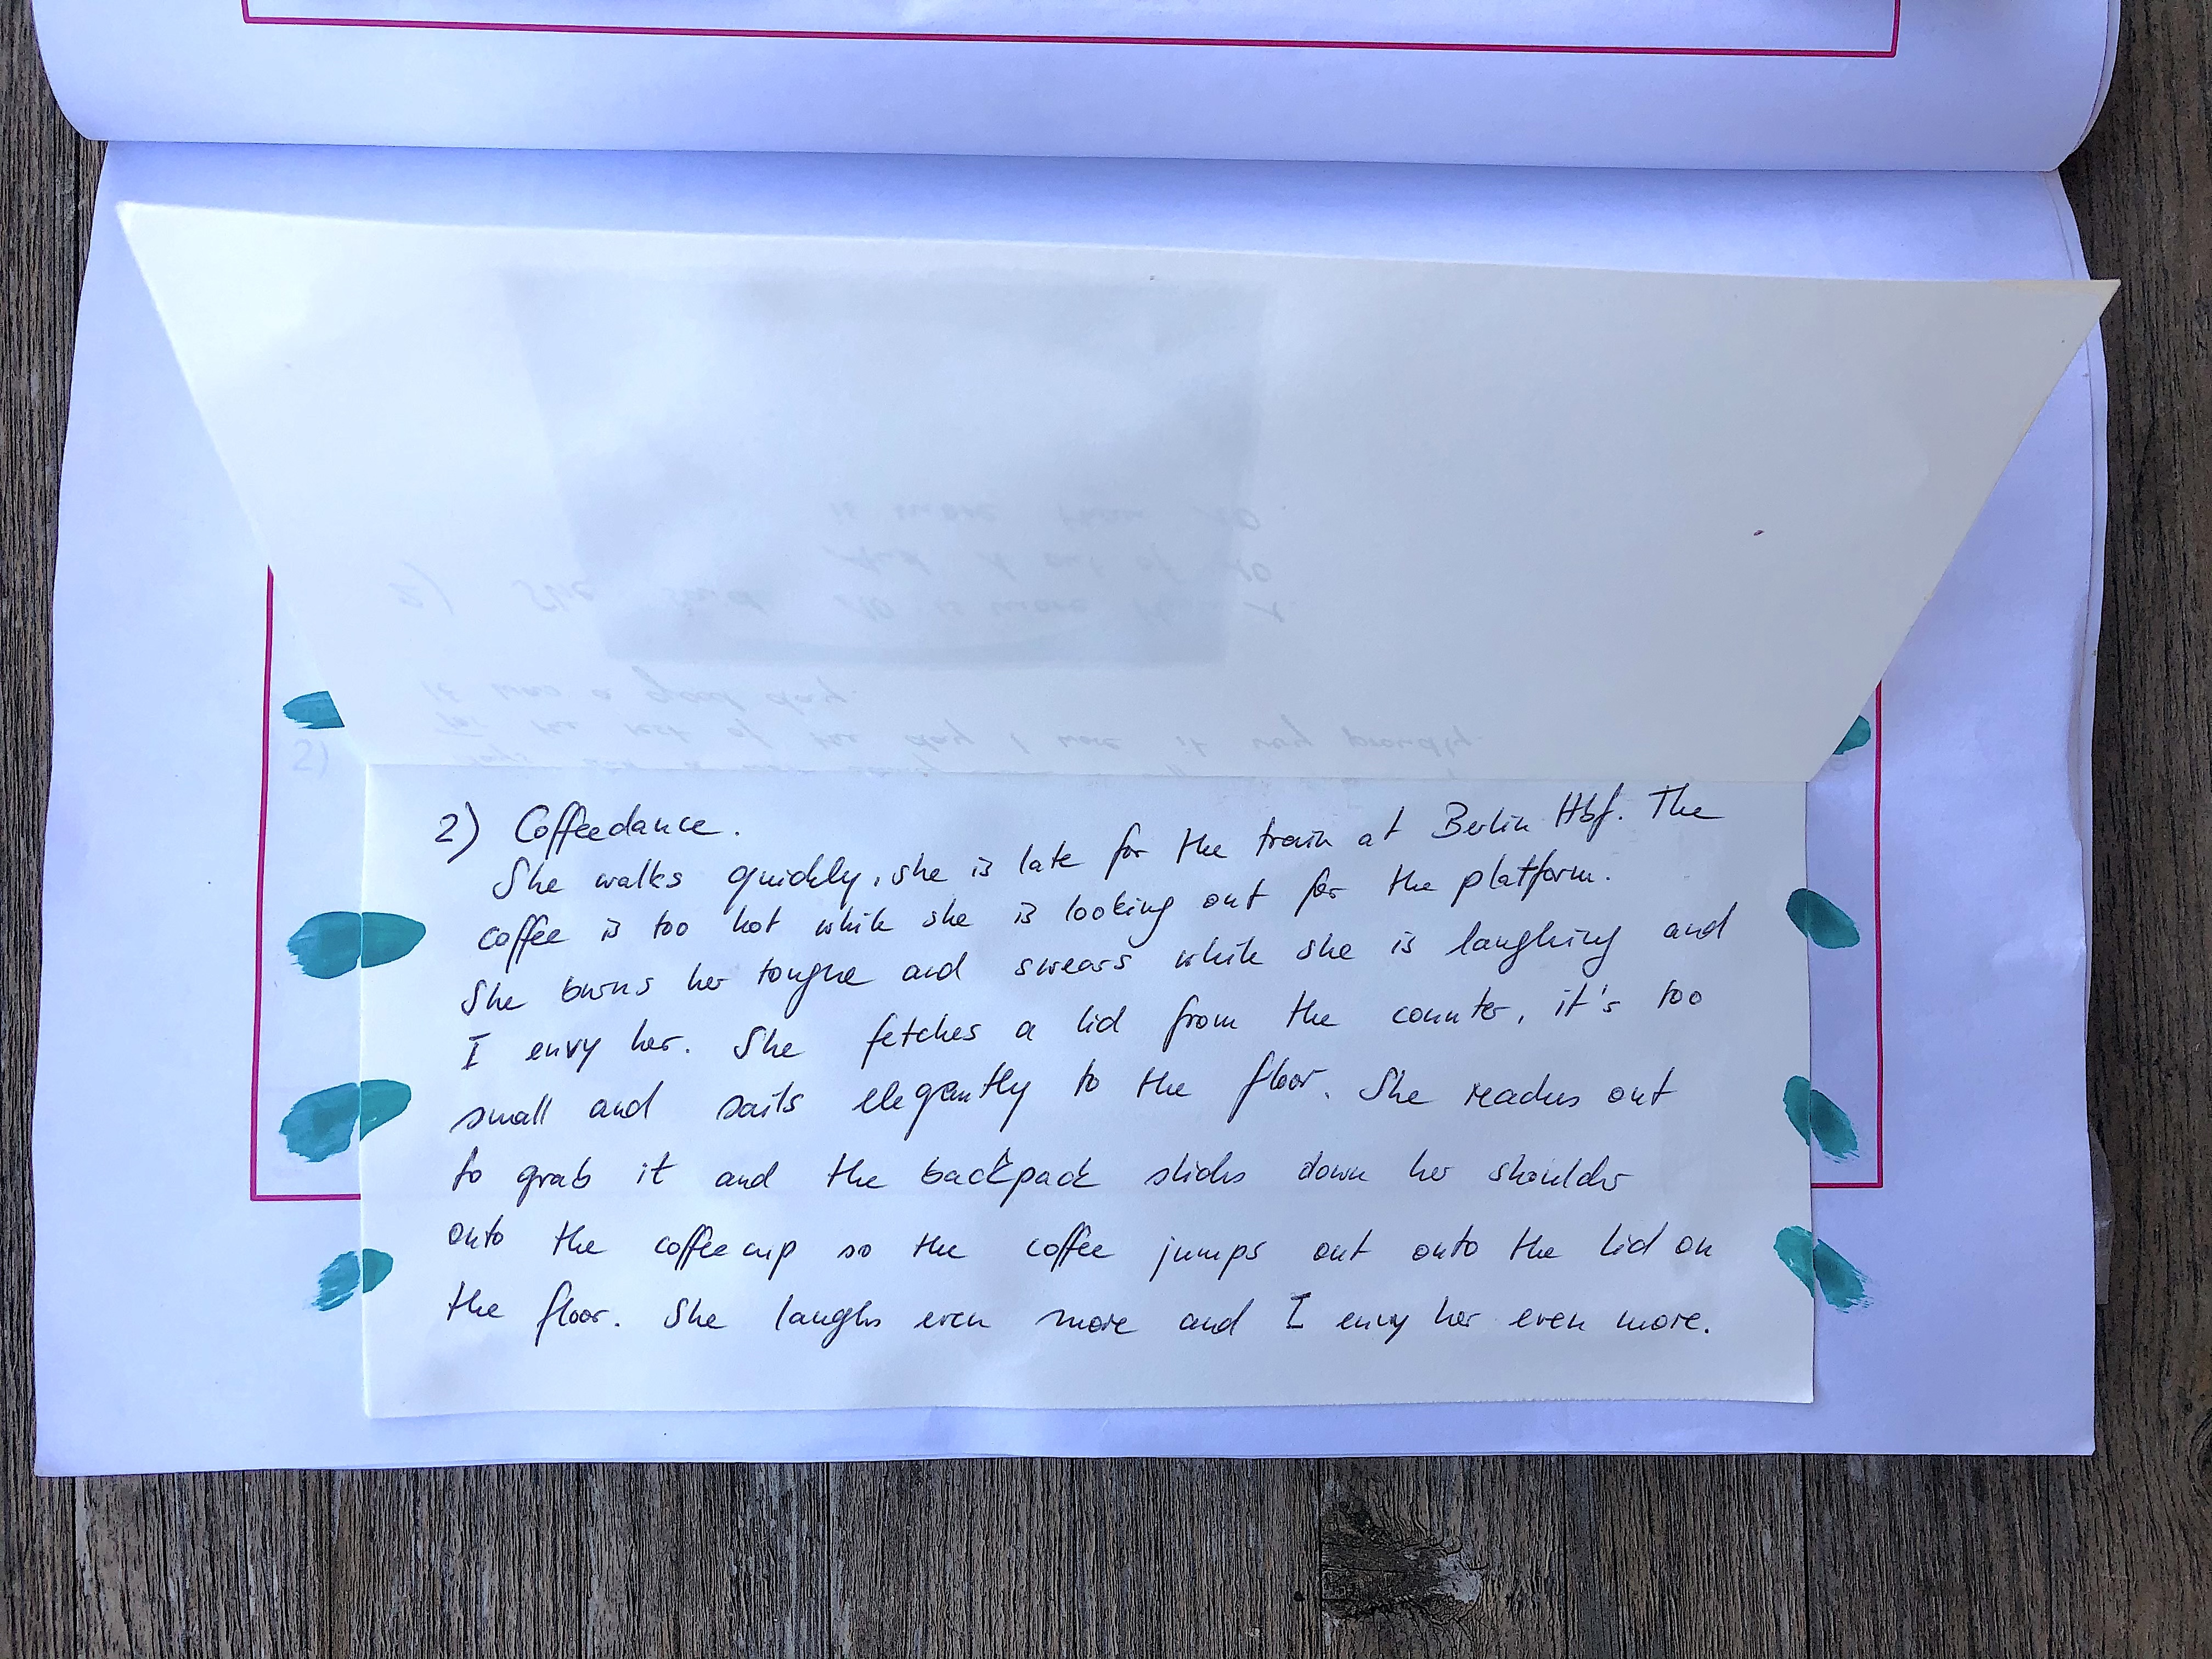 2) Coffeedance.
She walks quickly, she is late for the train at Berlin Hbf. The
coffee is too hot while she is looking out for the platform.
She burns her tongue and swears while she is laughing and
I envy her. She fetches a lid from the counter, it's too
small and sails elegantly to the floor. She reaches out
to grab it and the backpack slides down her shoulder
onto the coffee cup so the coffee jumps out onto the lid on
the floor. She laughs even more and I envy her even more.